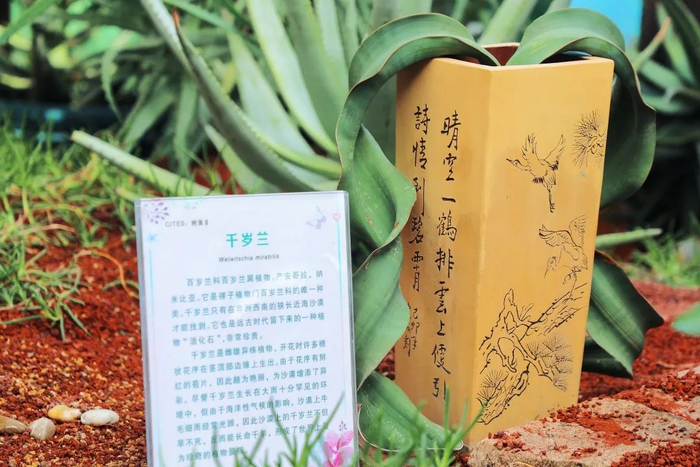 CITES：附录Ⅱ
千岁兰
Welwitschia mirabilis
百岁兰科百岁兰属植物，产安哥拉、纳
米比亚。它是裸子植物门百岁兰科的唯一种
类。千岁兰只有在非洲西南的狭长近海沙漠
才能找到。它也是远古时代留下来的一种植
物“活化石”，非常珍贵。
千岁兰是雌雄异株植物，开花时许多穗
状花序在茎顶部边缘上生出。由于花序有鲜
红的苞片，因此颇为艳丽，为沙漠增添了异
彩。尽管千岁兰生长在大而十分罕见的环
境中，但由于海洋性气候的影响，沙漠上牛
毛细雨经常光顾，因此沙漠上的千岁兰不但
旱不死，反而能长命千岁，而成了世界上最
为珍奇的植物
晴空一鹤排雲上便引
詩情到碧霄